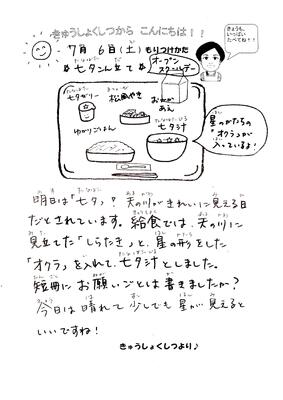 きゅうしょくしつから こんにちは！！
きょうも、
いっぱい
たべてね！！
7月 6日(土)もりつけかた
☆七夕こん立て☆
オープン
スクールデー
七夕ゼリー
松風やき
おかか
あえ
ゆかりごはん
七夕汁
星のかたちの
「オクラ」が
入っているよ！
明日は「七夕」？ 天の川がきれいに見える日
だとされています。給食では、天の川に
見立てた「しらたき」と、星の形をした
「オクラ」を入れて、七夕汁としました。
短冊にお願いごとは書きましたか？
今日は晴れて少しでも星が見えると
いいですね！
きゅうしょくしつより♪